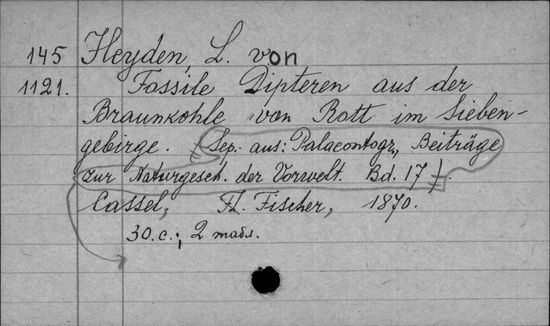 145 Heyden, L. von
1121. Fossile Dipteren aus der
Braunkohle von Rott im Sieben-
gebirge. (Sep. aus: Palaeontogr., Beiträge
zur Naturgesch. der Vorwelt. Bd. 17).
Cassel, Th. Fischer, 1870.
30.c.; 2 табл.